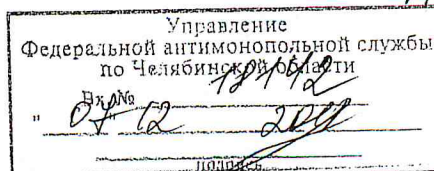 Управление
Федеральной антимонопольной службы
по Челябинской области
Вх.№
" 07 " 12
подпись